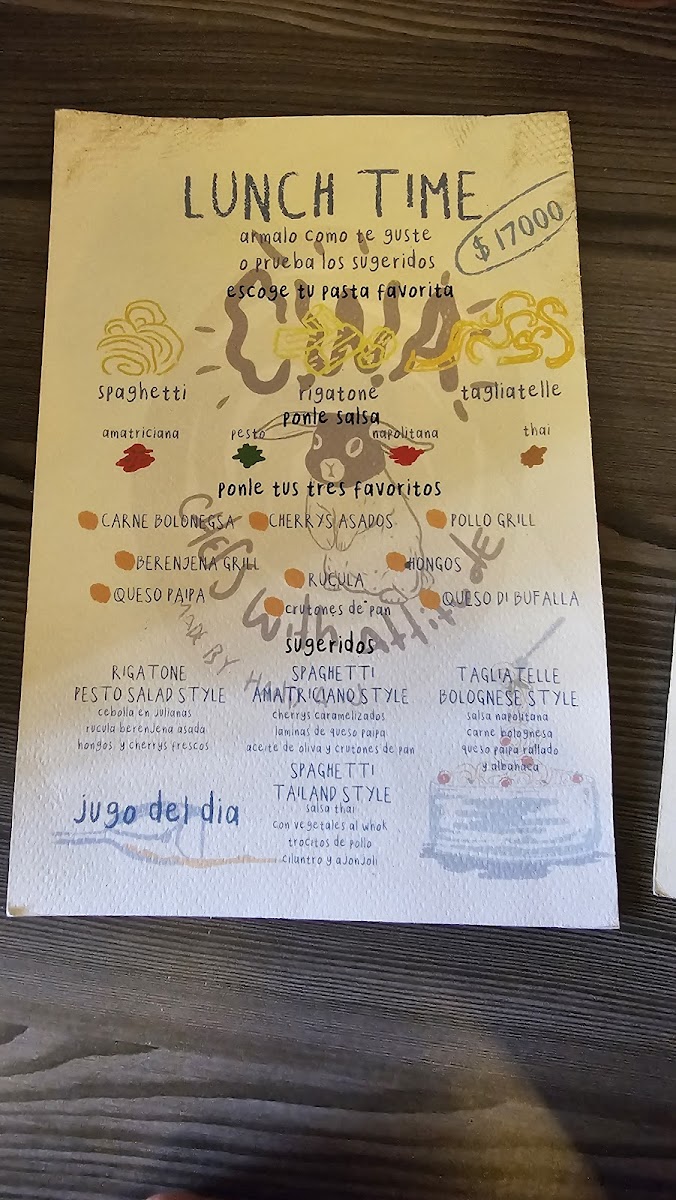 LUNCH TIME
$17000
armalo como te guste
o prueba los sugeridos
escoge tu pasta favorita
spaghetti
rigatone
tagliatelle
ponle salsa
amatriciana
pesto
napolitana
thai
ponle tus tres favoritos
CARNE BOLONEGSA
CHERRYS ASADOS
POLLO GRILL
BERENJENA GRILL
RUCULA
HONGOS
QUESO PAIPA
crutones de pan
QUESO DI BUFALLA
CHEFS With attitude
MADE BY
sugeridos
RIGATONE
PESTO SALAD STYLE
cebolla en julianas
rucula berenjena asada
hongos y cherrys frescos
SPAGHETTI
AMATRICIANO STYLE
cherrys caramelizados
laminas de queso paipa
aceite de oliva y crutones de pan
TAGLIATELLE
BOLOGNESE STYLE
salsa napolitana
carne bolognesa
queso paipa rallado
y albahaca
SPAGHETTI
TAILAND STYLE
salsa thai
con vegetales al whok
trocitos de pollo
cilantro y ajonjoli
jugo del dia